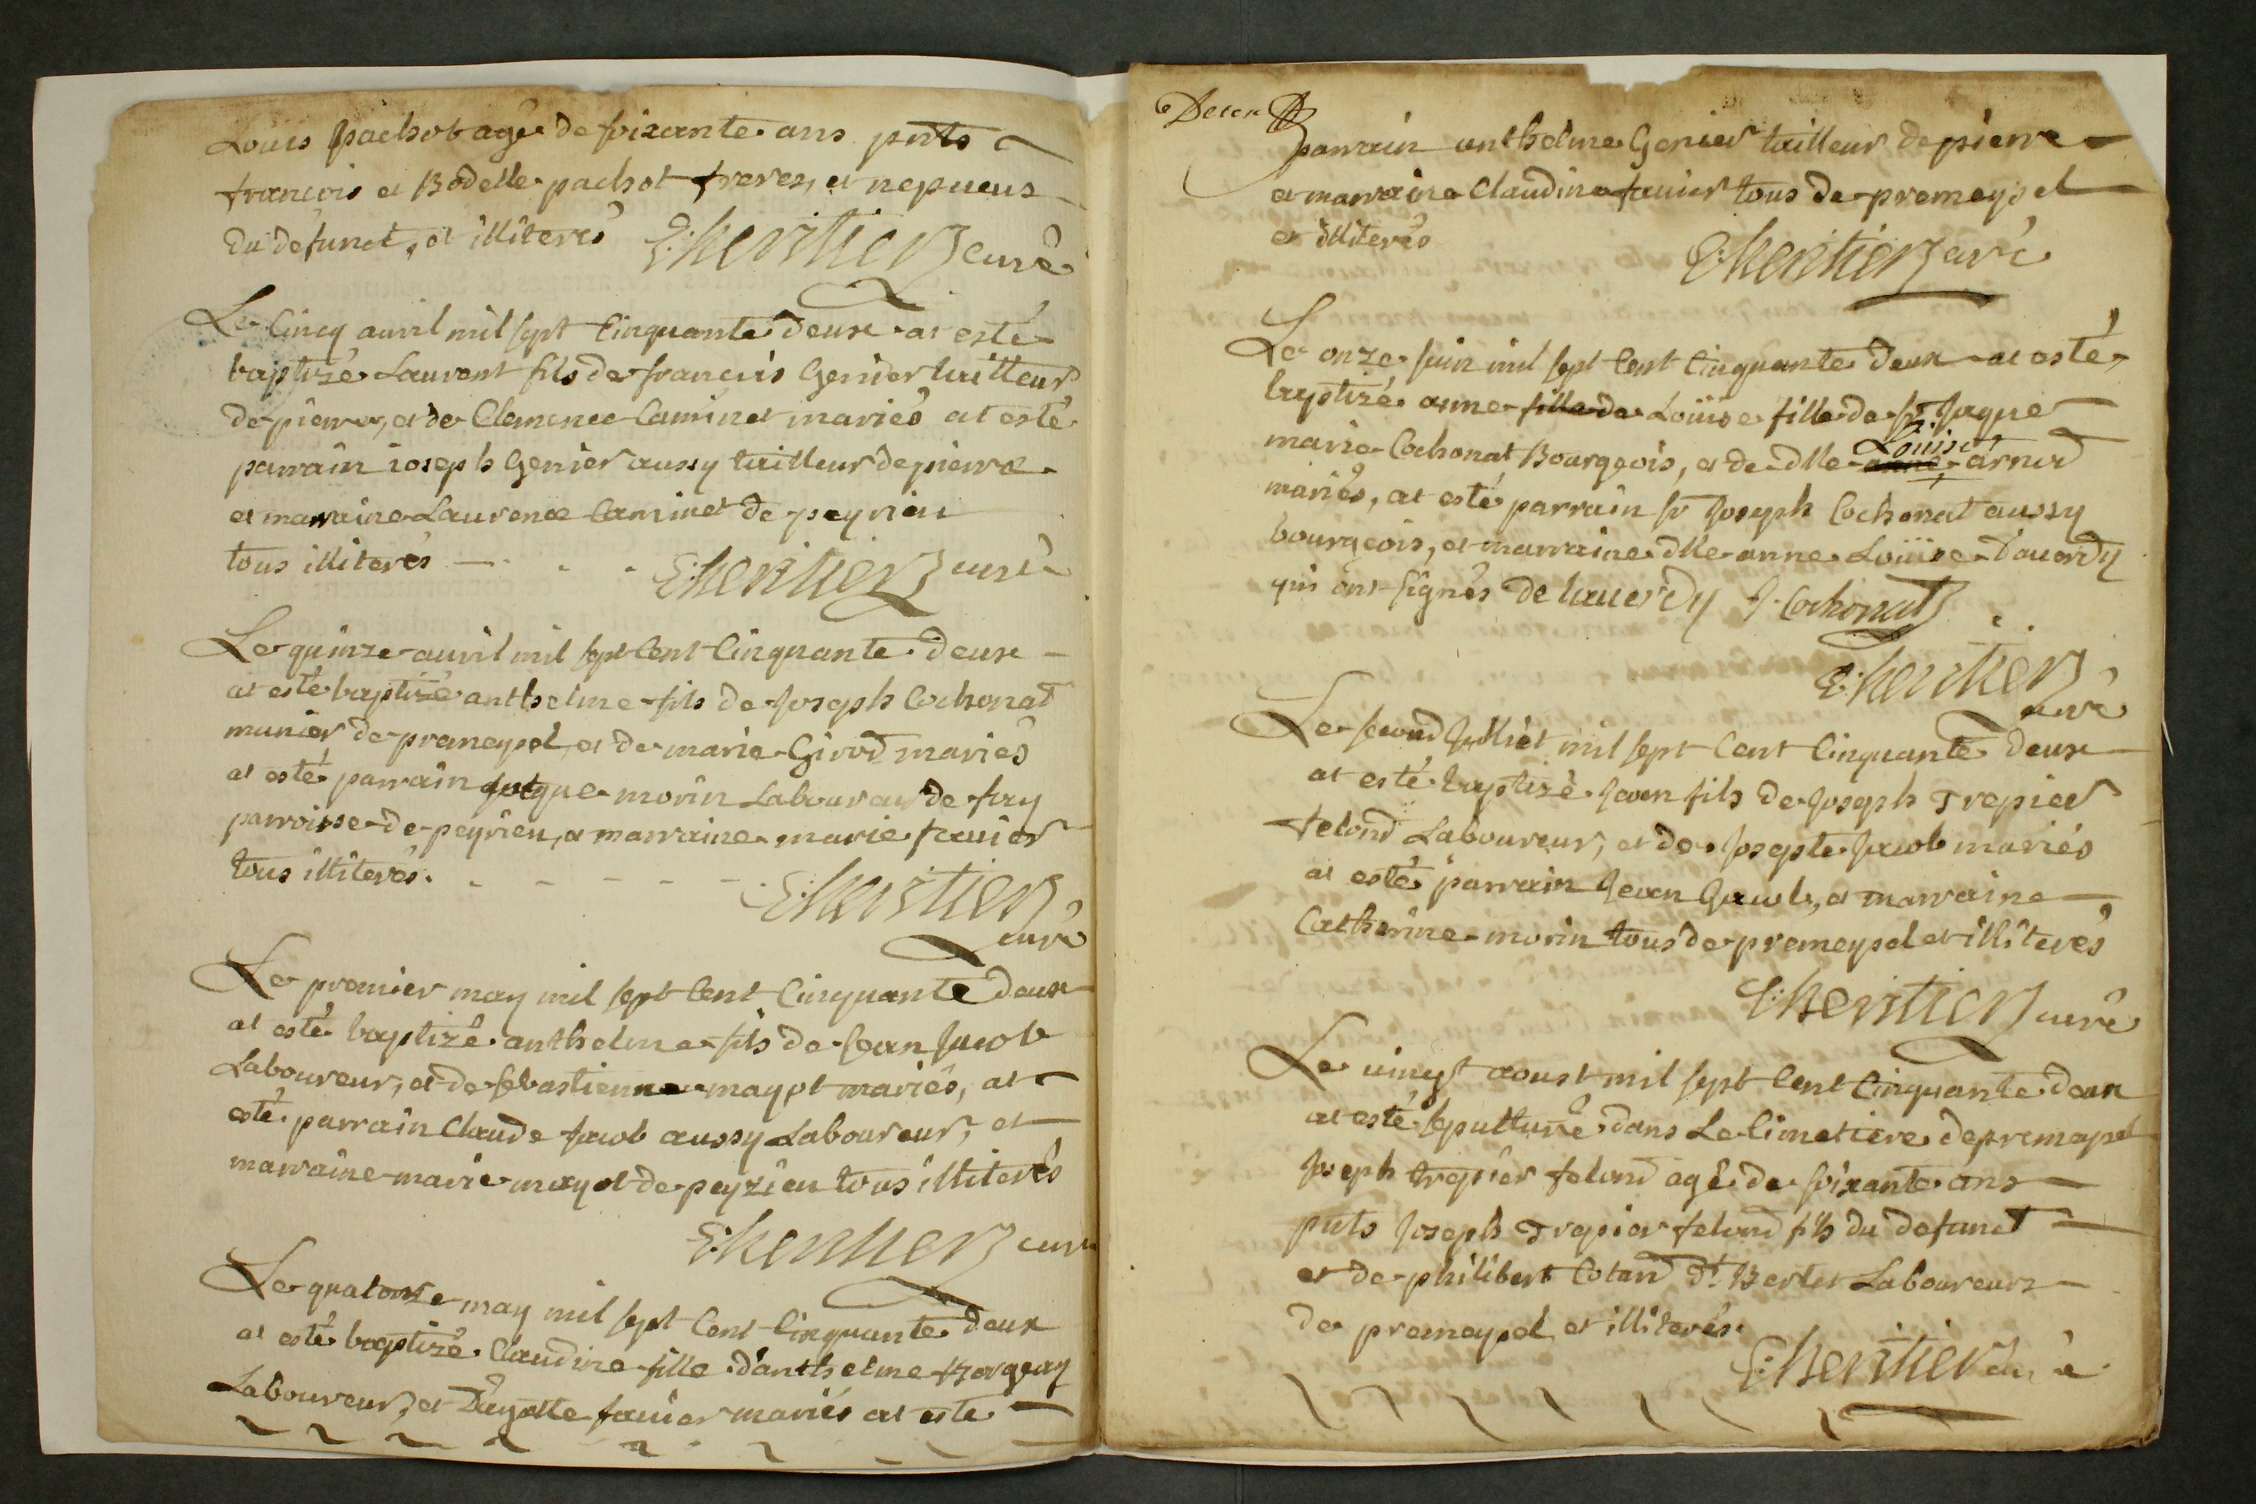 Louis pachot agé de soixante ans pnts
françois et Bodelle pachot freres, et nepueus
du defunct, et illiterés E: heritier curé
Le Cincq auril mil sept Cinquante deux at esté
baptizé Laurent fils de françois Genier tailleur
de pierre, et de Clemence Caminet mariés at esté
parrain ioseph Genier aussy tailleur de pierre
et marraine Laurence Caminet de peyrieu
tous illiterés E: heritier curé
Le quinze auril mil sept Cent Cinquante deux
at esté baptizé anthelme fils de Joseph Cochonat
munier de premeysel, et de marie Girod mariés
at esté parrain Jacque morin Laboureur de fay
parroisse de peyrieu, et marraine marie fauier
tous illiterés. E: heritier
curé
Le premier may mil sept Cent Cinquante deux
at esté baptizé anthelme fils de Jean Jacob
Laboureur, et de sebastienne mayot mariés, at
esté parrain Claude Jacob aussy Laboureur, et
marraine marie mayot de peyrieu tous illiterés
E: heritier curé
Le quatorze may mil sept Cent Cinquante deux
at esté baptizé Claudine fille d'anthelme
Laboureur, et fauier mariés at esté
parrain anthelme Genier tailleur de pierre
et marraine Claudine fauier tous de premeysel
et illiterés
E: heritier curé
Le onze Juin mil sept Cent Cinquante deux at esté
baptizé anne fille de Loüise fille de sr. Jaque
marie Cochonat Bourgeois, et de dlle anne Louise
mariés, at esté parrain sr Joseph Cochonat aussy
bourgeois, et marraine dlle anne Loüise Dauerdy
qui ont signés De hauerdy J. Cochonat
E: heritier
curé
Le second Julliet mil sept Cent Cinquante deux
at esté baptizé Jean fils de Joseph Trepier
felond Laboureur, et de Josepte Jacob mariés
at esté parrain Jean Jacob, et marraine
Catherine morin tous de premeysel et illiterés
E: heritier curé
Le uingt aoust mil sept Cent Cinquante deux
at esté sepulturé dans Le Cimetiere de premeysel
Joseph trepier felond agé de soixante ans
pnts Joseph Trepier felond fils du defunct
et de philibert Cotand dt. Berlet Laboureurs
de premeysel, et illiterés.
E: heritier curé